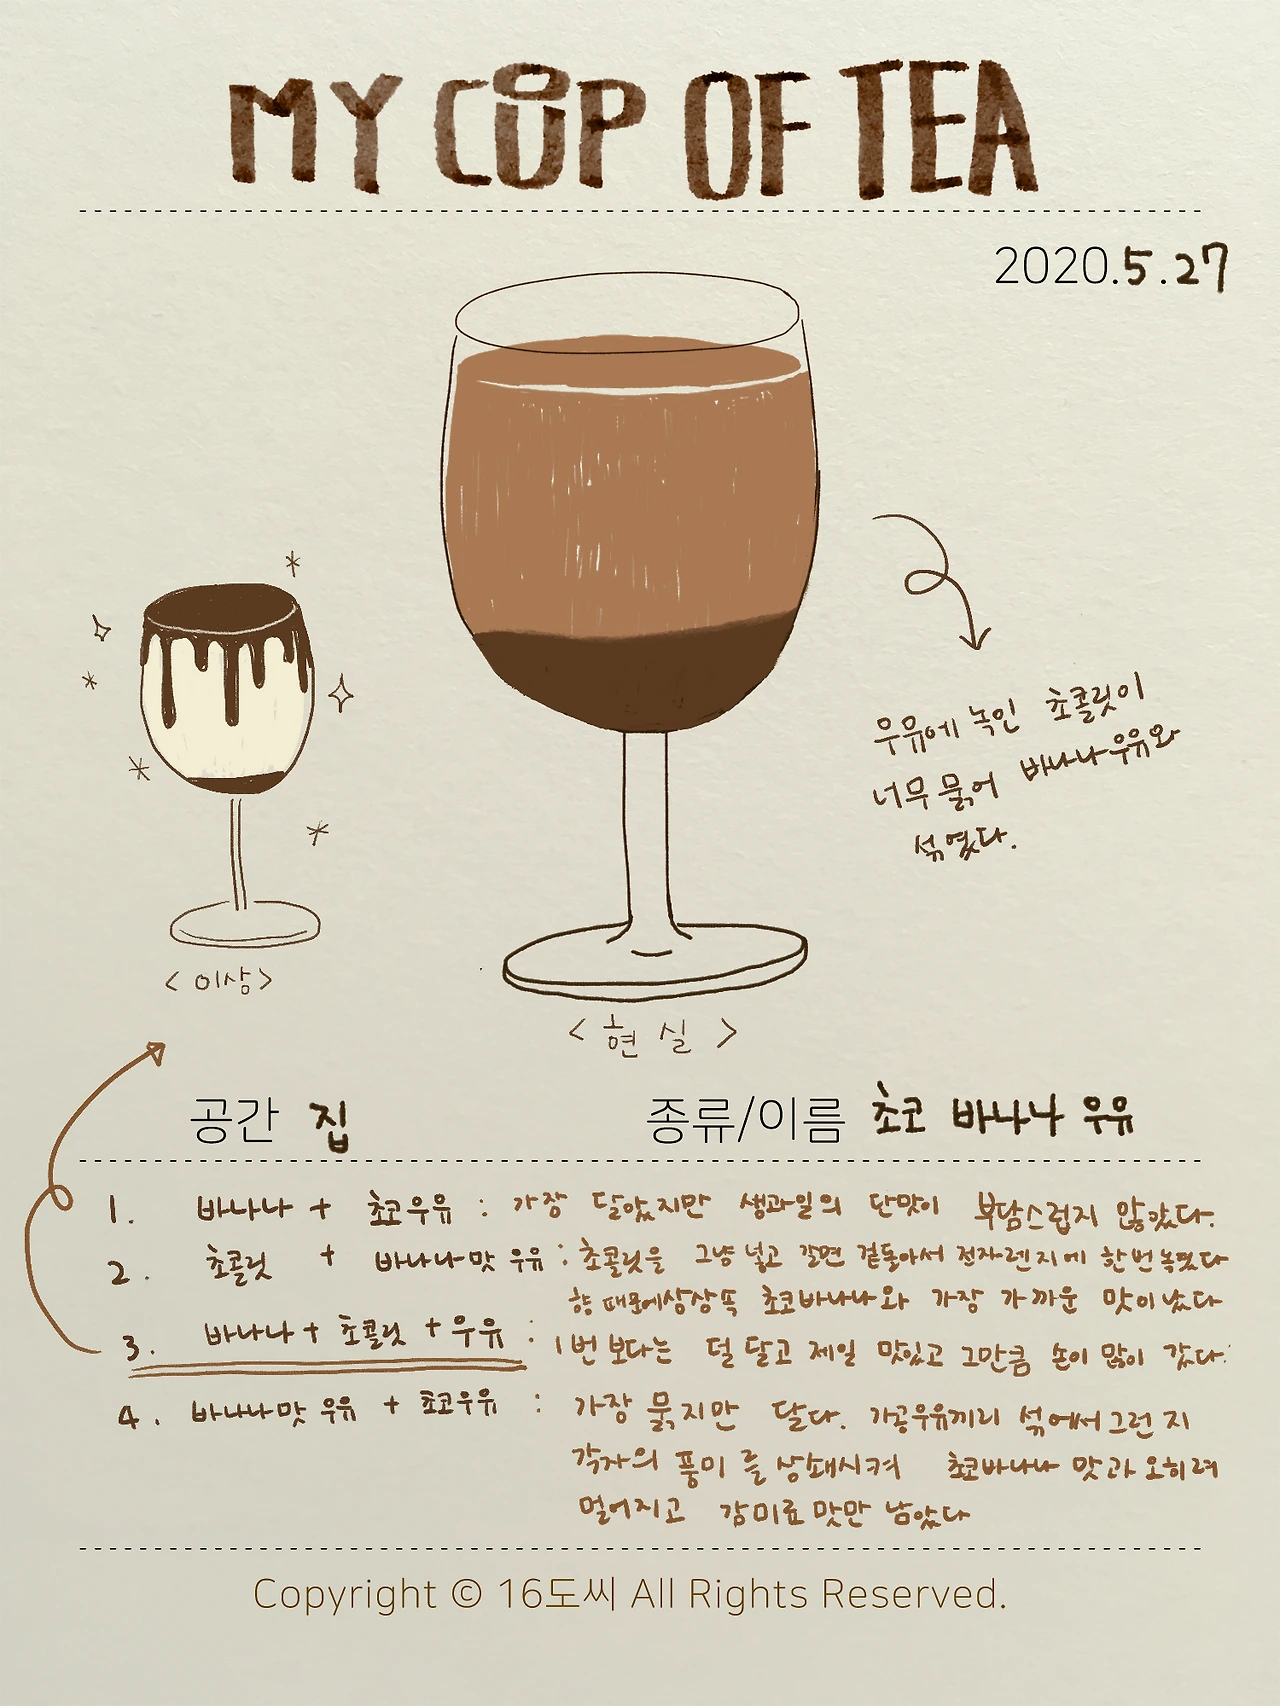 MY CUP OF TEA
2020.5.27
우유에 녹인 초콜릿이
너무 묽어 바나나우유와
섞였다.
<이상>
<현실>
공간 집
종류/이름 초코 바나나 우유
1. 바나나 + 초코우유 : 가장 달았지만 생과일의 단맛이 부담스럽지 않았다.
2. 초콜릿 + 바나나맛 우유 : 초콜릿을 그냥 넣고 갈면 겉돌아서 전자렌지에 한번 녹였다
향 때문에 상상 속 초코바나나와 가장 가까운 맛이 났다
3. 바나나 + 초콜릿 + 우유 : 1번 보다는 덜 달고 제일 맛있고 그만큼 손이 많이 갔다.
4. 바나나맛 우유 + 초코우유 : 가장 묽지만 달다. 가공우유끼리 섞어서 그런지
각자의 풍미를 상쇄시켜 초코바나나 맛과 오히려
멀어지고 감미료 맛만 남았다
Copyright © 16도씨 All Rights Reserved.